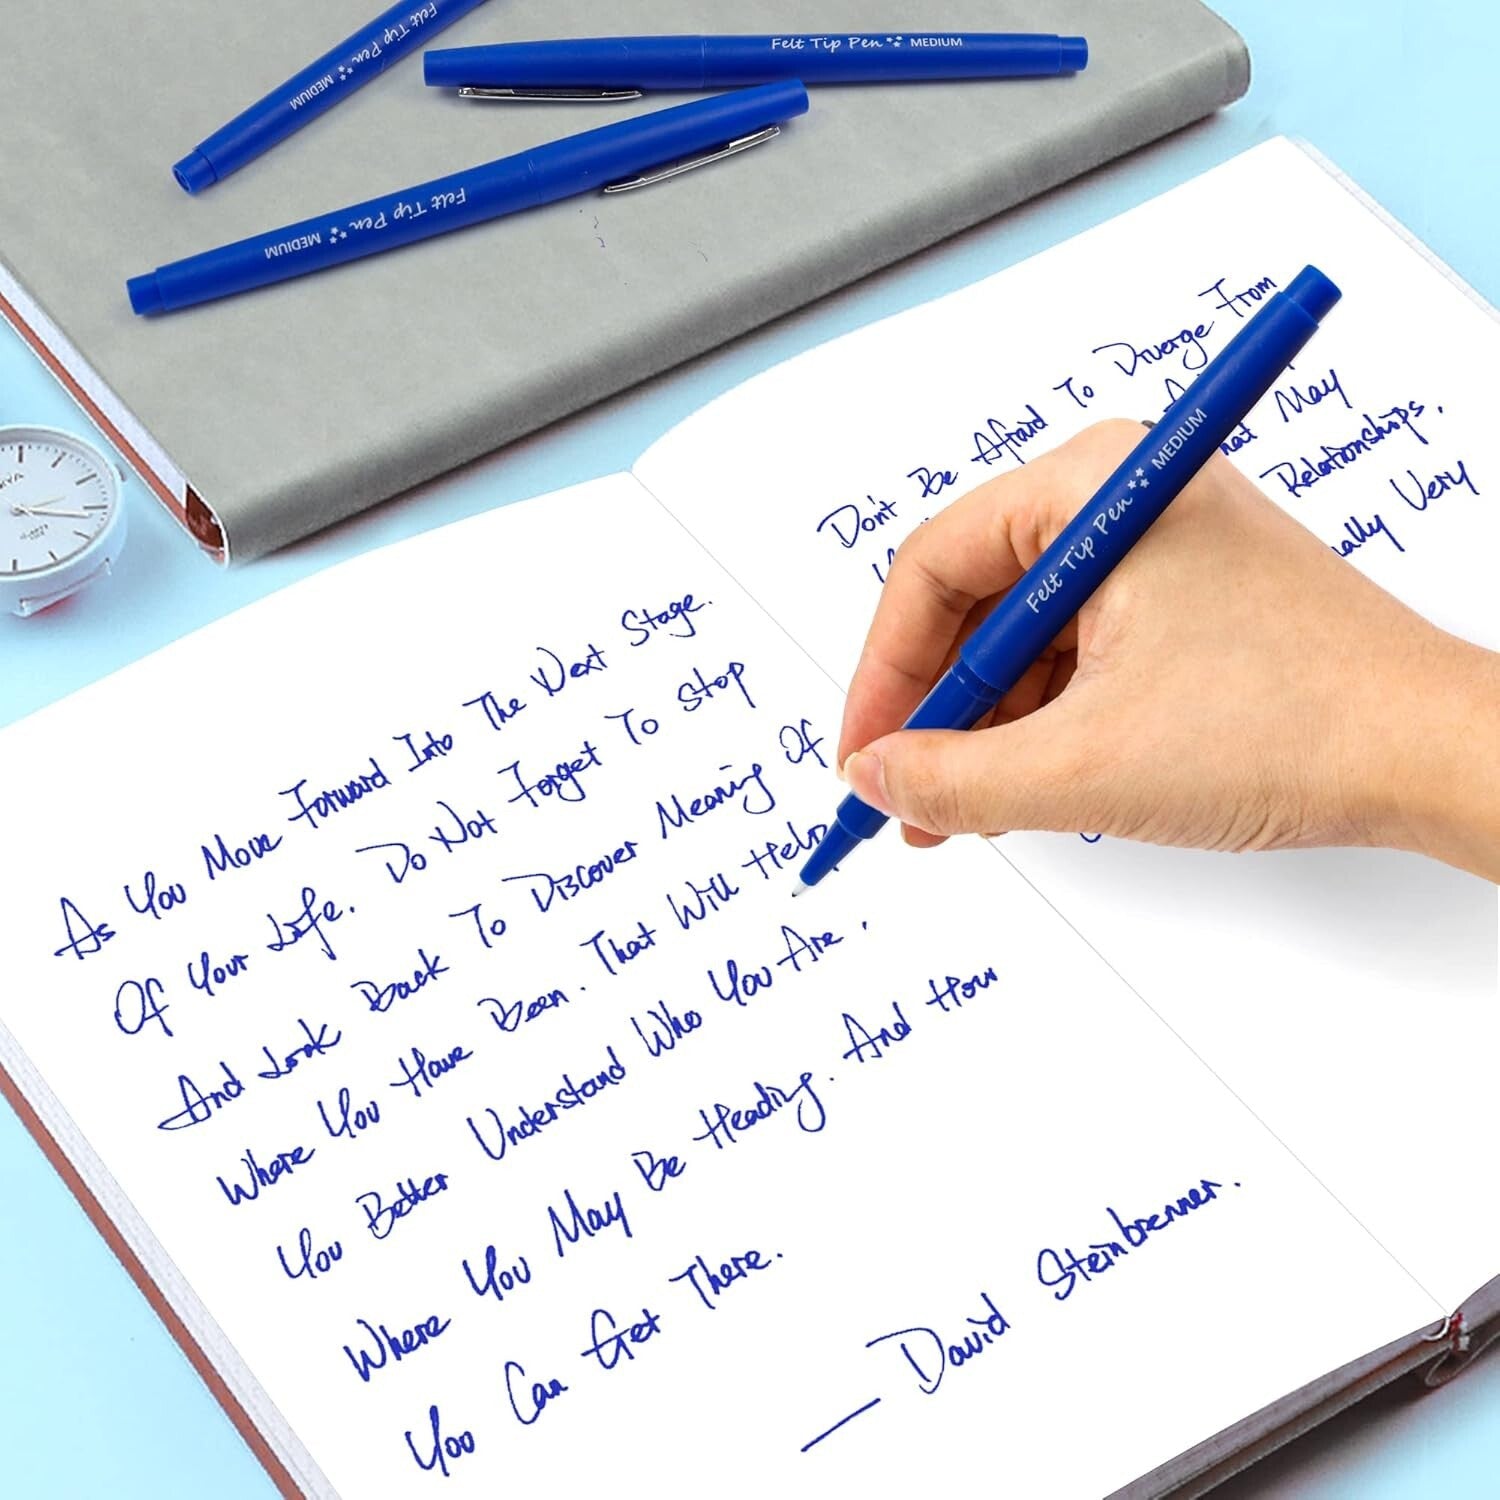 Felt Tip Pen MEDIUM
Felt Tip Pen MEDIUM
Felt Tip Pen MEDIUM
Felt Tip Pen MEDIUM
As You Move Forward Into The Next Stage.
Of Your Life. Do Not Forget To Stop
And Look Back To Discover Meaning Of
Where You Have Been. That Will Help
You Better Understand Who You Are,
Where You May Be Heading. And How
You Can Get There.
— David Steinbrenner.
Don't Be Afraid To Diverge From
May
Relationships,
Very